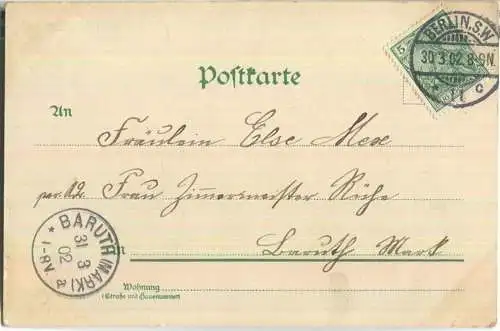 BERLIN.S.W
30.3.02.8-9N.
c
5
Postkarte
An
Fräulein Else
Frau Zimmermeister
Baruth Mark
BARUTH (MARK)
31 3
02
1-8V.
a
in
Wohnung
(Straße und Hausnummer)